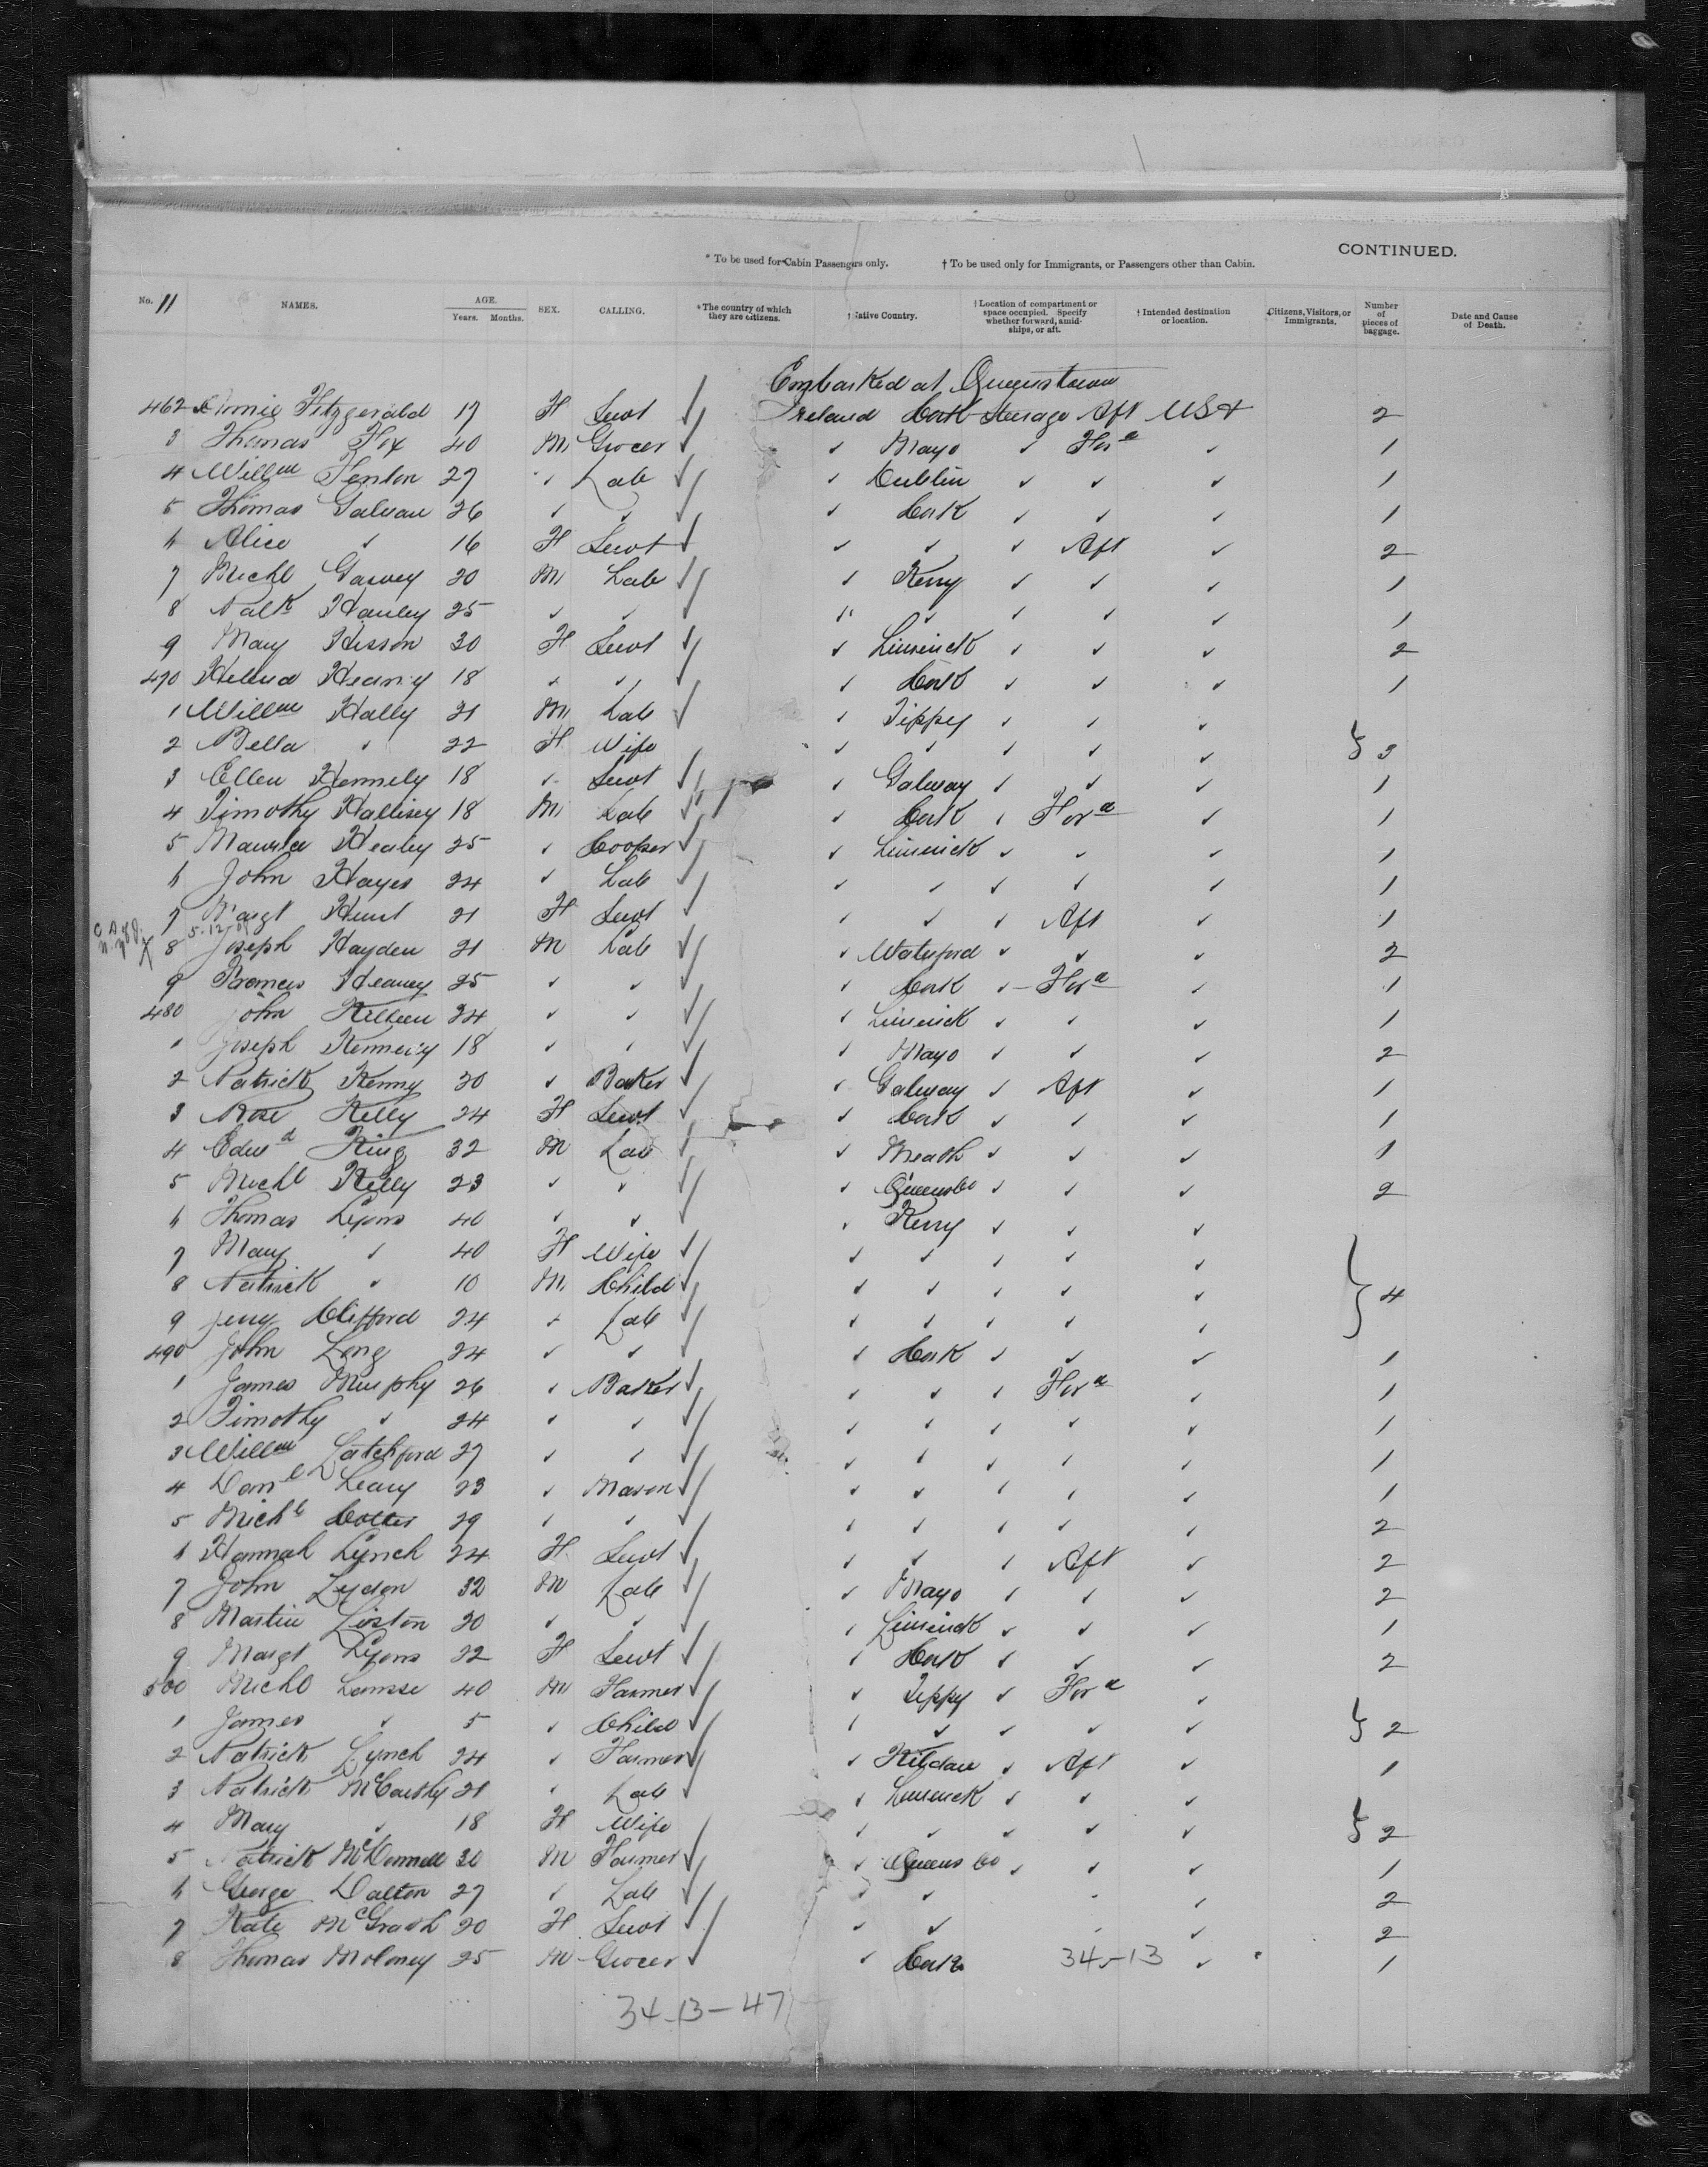 CONTINUED.
* To be used for Cabin Passengers only. † To be used only for Immigrants, or Passengers other than Cabin.
No. 11 NAMES. AGE. Years. Months. SEX. CALLING. * The country of which they are citizens. † Native Country. † Location of compartment or space occupied. Specify whether forward, amidships, or aft. † Intended destination or location. Citizens, Visitors, or Immigrants. Number of pieces of baggage. Date and Cause of Death.
Embarked at Queenstown
462 Annie Fitzgerald 17 F Servt ✓ Ireland Cork Steerage Aft USA 2
3 Thomas Fox 40 M Grocer ✓ ✓ Mayo ✓ Ford ✓ 1
4 Willm Fenton 27 ✓ Lab ✓ ✓ Dublin ✓ ✓ ✓ 1
5 Thomas Galvan 26 ✓ ✓ ✓ ✓ Cork ✓ ✓ ✓ 1
6 Alice ✓ 16 F Servt ✓ ✓ ✓ ✓ Aft ✓ 2
7 Michl Garvey 20 M Lab ✓ ✓ Kerry ✓ ✓ ✓ 1
8 Patk Hanley 25 ✓ ✓ ✓ ✓ ✓ ✓ ✓ ✓ 1
9 Mary Hisson 30 F Servt ✓ ✓ Limerick ✓ ✓ ✓ 2
470 Helena Heany 18 ✓ ✓ ✓ ✓ Cork ✓ ✓ ✓ 1
1 Willm Hally 21 M Lab ✓ ✓ Tippy ✓ ✓ ✓
2 Bella ✓ 22 F Wife ✓ ✓ ✓ ✓ ✓ } 3
3 Ellen Hennely 18 ✓ Servt ✓ ✓ Galway ✓ ✓ ✓ 1
4 Timothy Hallisey 18 M Lab ✓ ✓ Cork ✓ Ford ✓ 1
5 Maurice Healey 25 ✓ Cooper ✓ ✓ Limerick ✓ ✓ ✓ 1
6 John Hayes 24 ✓ Lab ✓ ✓ ✓ ✓ ✓ ✓ 1
7 Margt Hunt 21 F Servt ✓ ✓ ✓ ✓ Aft ✓ 1
X 8 Joseph Hayden 21 M Lab ✓ ✓ Waterford ✓ ✓ ✓ 2
9 Francis Heaney 25 ✓ ✓ ✓ ✓ Cork ✓ Ford ✓ 1
480 John Killeen 24 ✓ ✓ ✓ ✓ Limerick ✓ ✓ ✓ 1
1 Joseph Kennedy 18 ✓ ✓ ✓ ✓ Mayo ✓ ✓ ✓ 2
2 Patrick Kenny 20 ✓ Baker ✓ ✓ Galway ✓ Aft ✓ 1
3 Rose Kelly 24 F Servt ✓ ✓ Cork ✓ ✓ ✓ 1
4 Edwd King 32 M Lab ✓ ✓ Meath ✓ ✓ ✓ 1
5 Michl Kelly 23 ✓ ✓ ✓ ✓ Queens Co ✓ ✓ ✓ 2
6 Thomas Lyons 40 ✓ ✓ ✓ ✓ Kerry ✓ ✓ ✓
7 Mary ✓ 40 F Wife ✓ ✓ ✓ ✓ ✓ ✓
8 Patrick ✓ 10 M Child ✓ ✓ ✓ ✓ ✓ ✓ } 4
9 Jerry Clifford 24 ✓ Lab ✓ ✓ ✓ ✓ ✓ ✓
490 John Long 24 ✓ ✓ ✓ ✓ Cork ✓ ✓ ✓ 1
1 James Murphy 26 ✓ Baker ✓ ✓ ✓ ✓ Ford ✓ 1
2 Timothy ✓ 24 ✓ ✓ ✓ ✓ ✓ ✓ ✓ ✓ 1
3 Willm Latchford 27 ✓ ✓ ✓ ✓ ✓ ✓ ✓ ✓ 1
4 Danl Leary 23 ✓ Mason ✓ ✓ ✓ ✓ ✓ ✓ 1
5 Michl Cotter 29 ✓ ✓ ✓ ✓ ✓ ✓ ✓ ✓ 2
6 Hannah Lynch 24 F Servt ✓ ✓ ✓ ✓ Aft ✓ 2
7 John Lydon 32 M Lab ✓ ✓ Mayo ✓ ✓ ✓ 2
8 Martin Liston 20 ✓ ✓ ✓ ✓ Limerick ✓ ✓ ✓ 1
9 Margt Lyons 22 F Servt ✓ ✓ Cork ✓ ✓ ✓ 2
500 Michl 40 M Farmer ✓ ✓ Tippy ✓ Ford ✓
1 James ✓ 5 ✓ Child ✓ ✓ ✓ ✓ ✓ ✓ } 2
2 Patrick Lynch 24 ✓ Farmer ✓ ✓ Kildare ✓ Aft ✓ 1
3 Patrick McCarthy 21 ✓ Lab ✓ ✓ Limerick ✓ ✓ ✓
4 Mary ✓ 18 F Wife ✓ ✓ ✓ ✓ ✓ } 2
5 Patrick McDonnell 30 M Farmer ✓ ✓ Queens Co ✓ ✓ ✓ 1
6 George Dalton 27 ✓ Lab ✓ ✓ ✓ ✓ ✓ 2
7 Kate McGrath 20 F Servt ✓ ✓ ✓ ✓ ✓ 2
8 Thomas Moloney 25 M Grocer ✓ ✓ Cork 34-13 ✓ 1
34-13-47